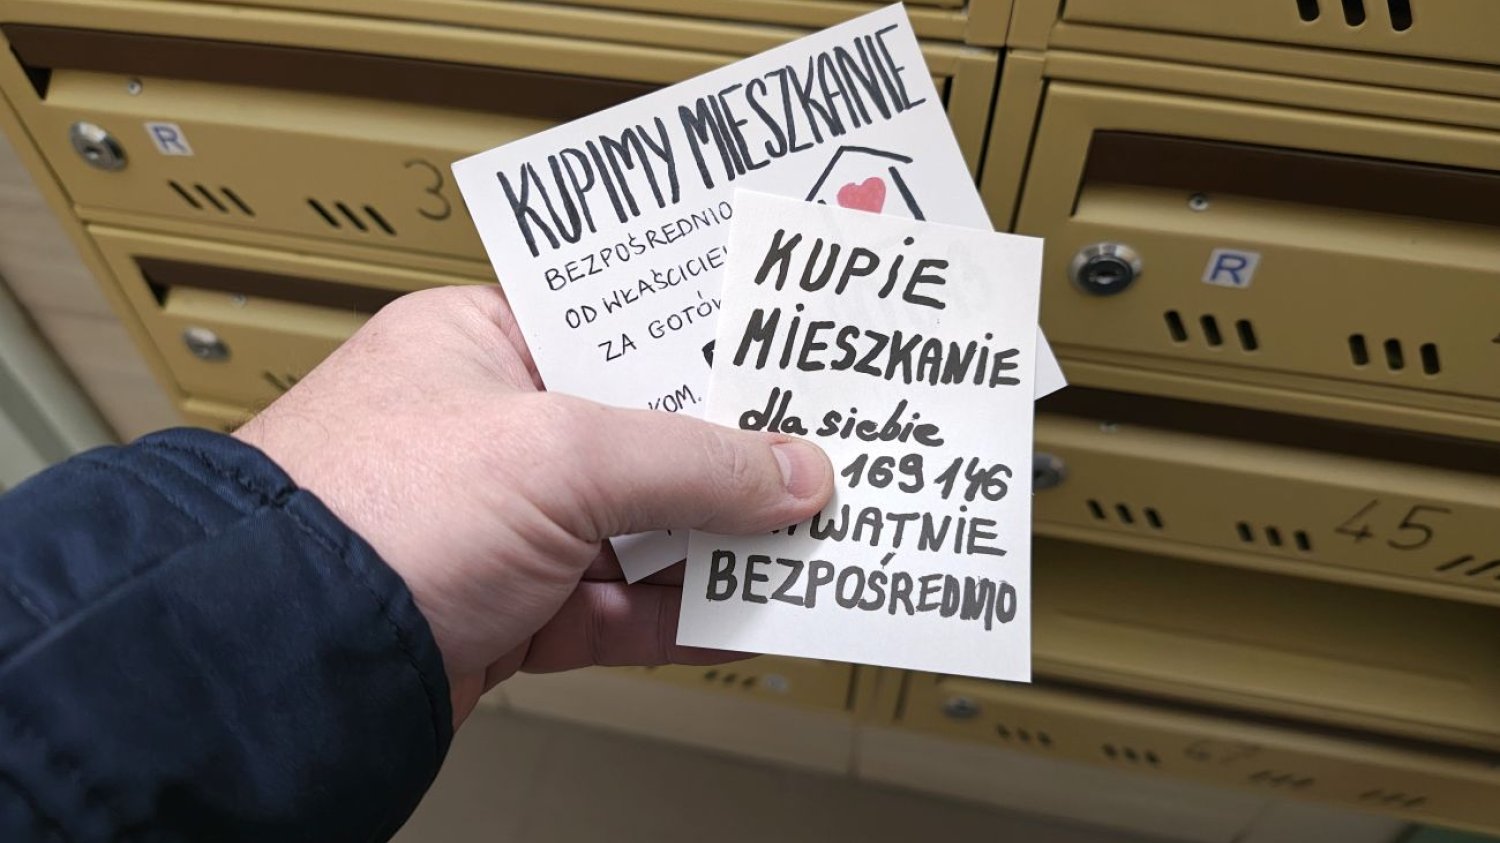 KUPIMY MIESZKANIE
BEZPOŚREDNIO
OD WŁAŚCICIE
ZA GOTÓW
KOM.
KUPIE
MIESZKANIE
dla siebie
169 146
WATNIE
BEZPOŚREDNIO
R
3
R
45
67